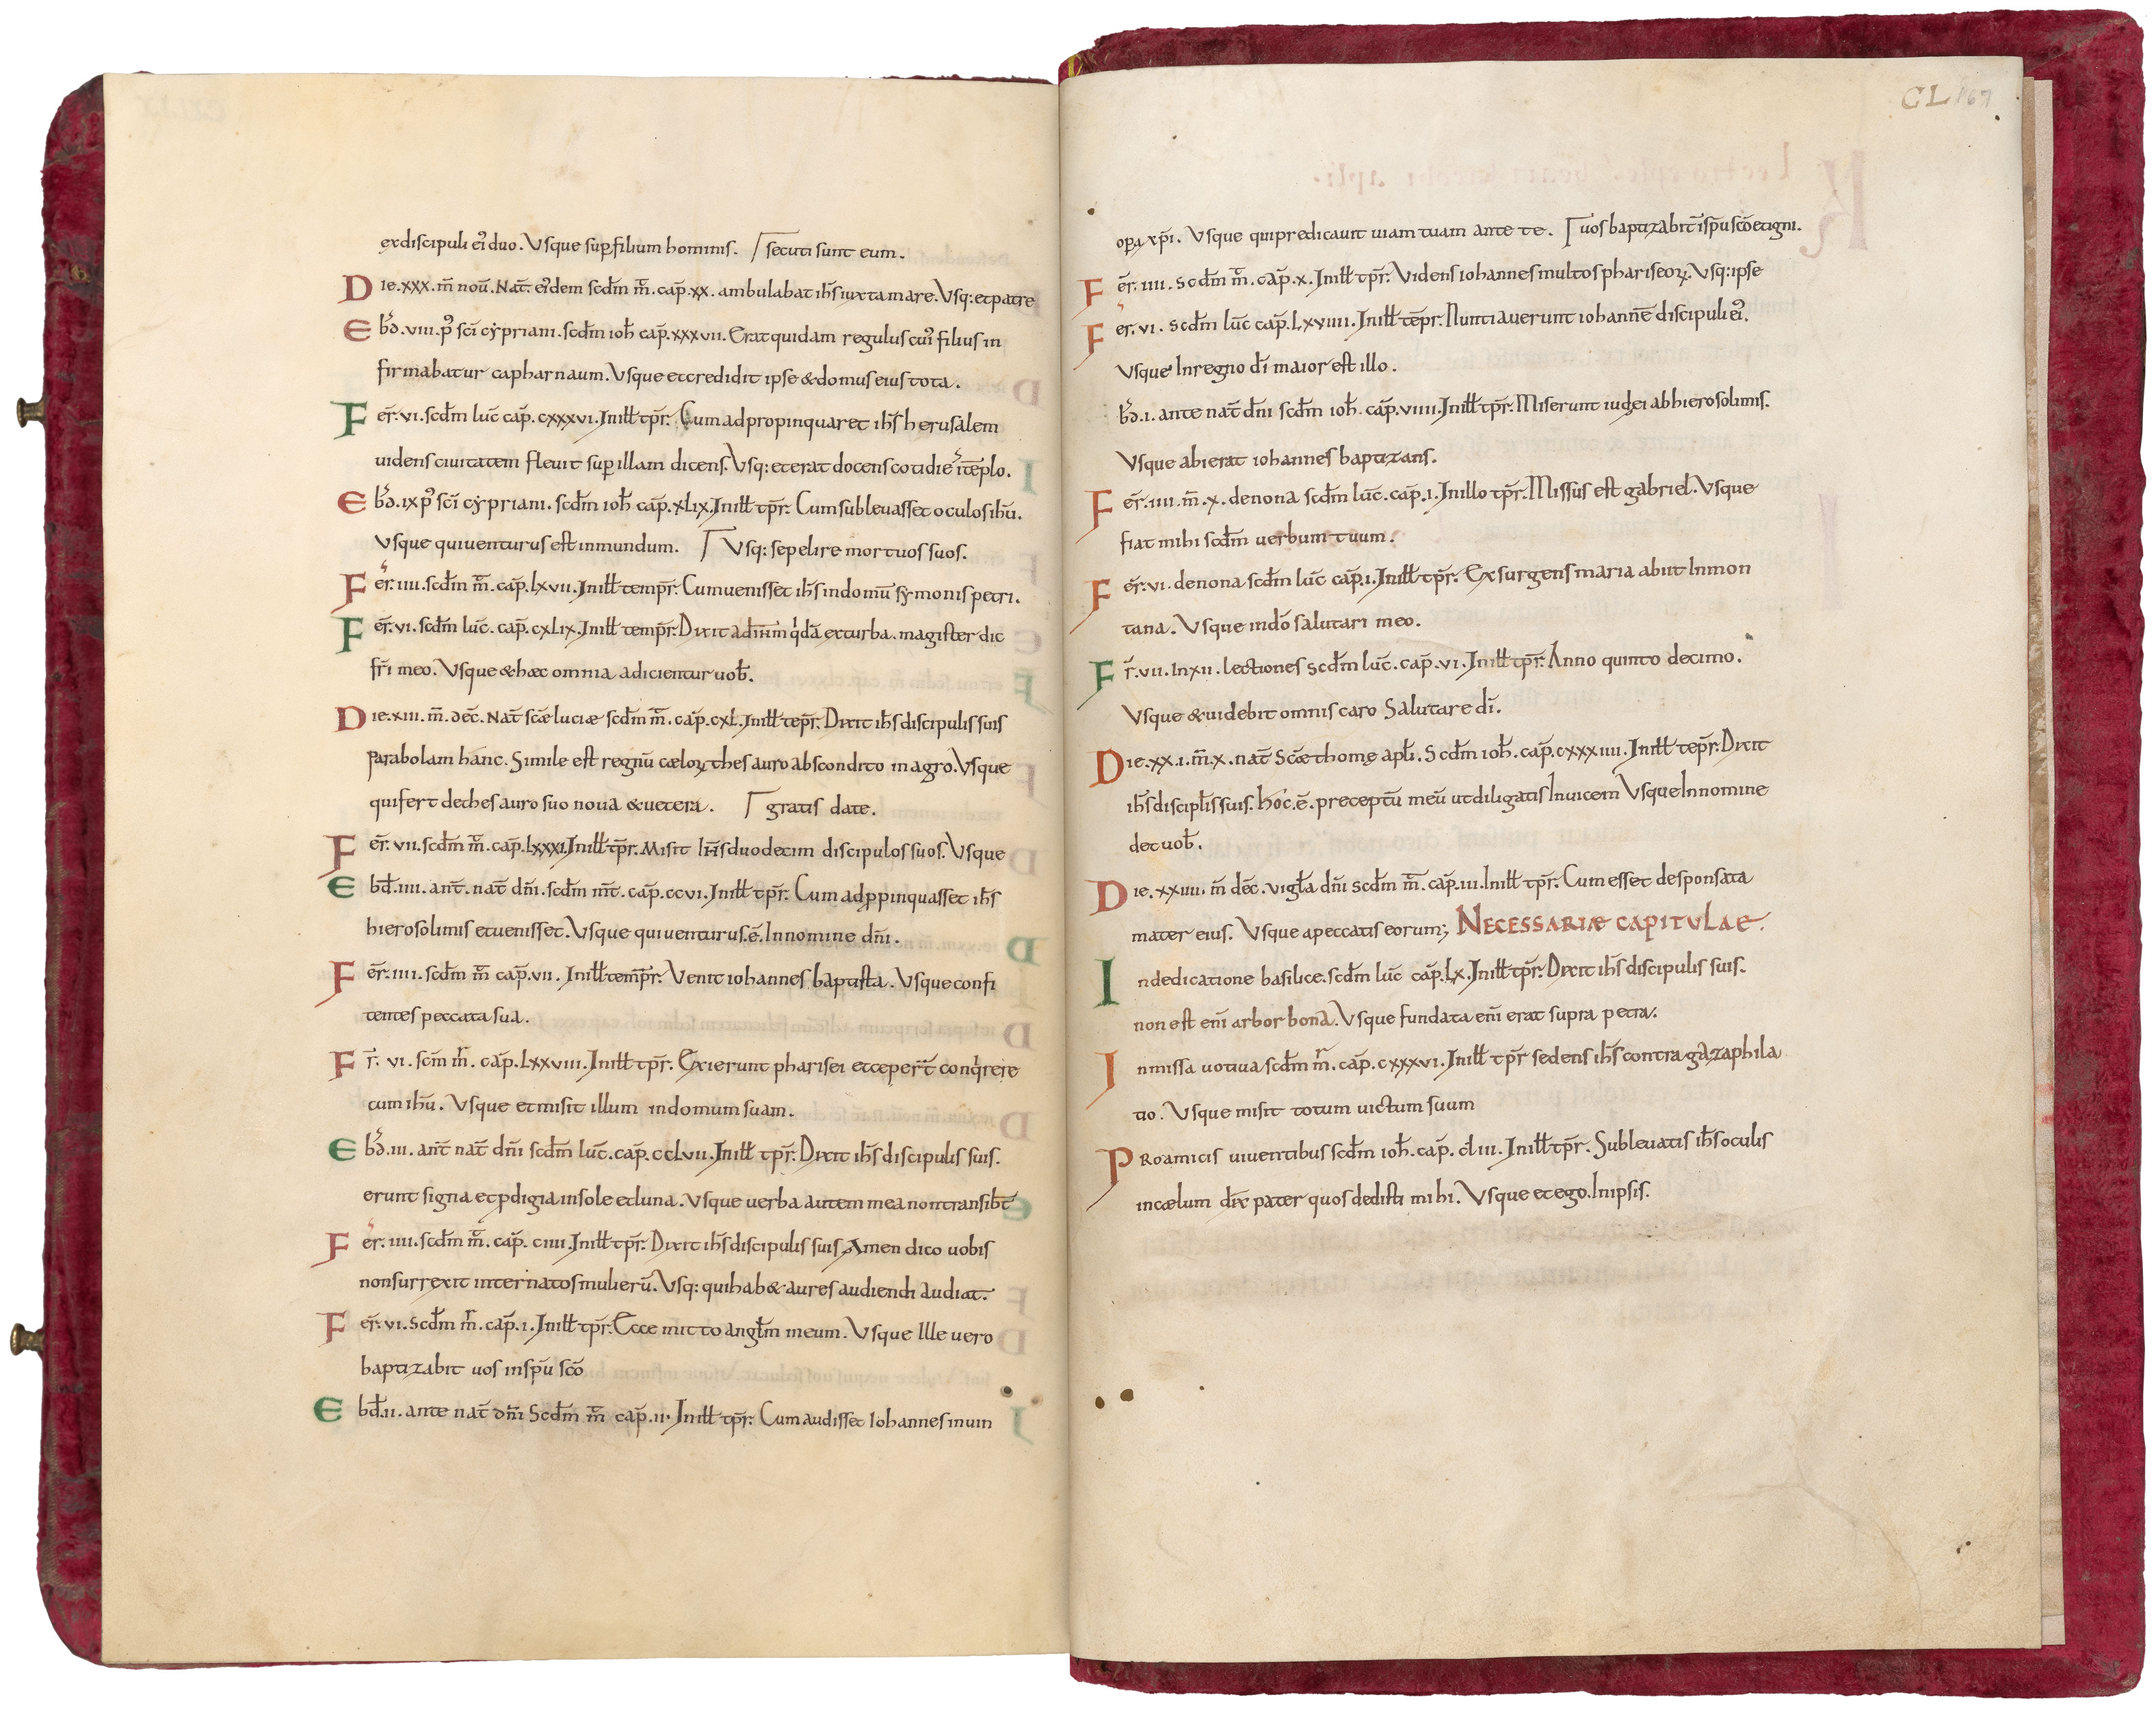 ex discipuli ei᾽ duo. Vsque sup filium hominis. Γ secuti sunt eum.
Die. xxx. m̄ nou̅. Nat̄. ei᾽dem scd̄m m̄. cap̄. xx. ambulabat ih̄s iuxta mare. Vsq: et patre
Ebd̄. viii. p᾽ sc̄i cẏpriani. scd̄m ioh̄ cap̄. xxxvii. Erat quidam regulus cui᾽ filius in
firmabatur capharnaum. Vsque et credidit ipse & domus eius tota.
Fer̄. vi. scd̄m luc̄ cap̄. cxxxvi. Inill̄ tp̄r. Cum adpropinquaret ih̄s herusalem
uidens ciuitatem fleuit sup illam dicens. Vsq: et erat docens cotidie ı̄ tēplo.
Ebd̄. ix p᾽ sc̄i cẏpriani. scd̄m ioh̄ cap̄. xlix. Inill̄ tp̄r. Cum subleuasset oculos ih̄u.
Vsque qui uenturus est in mundum. Γ Vsq: sepelire mortuos suos.
Fer̄. iiii. scd̄m m̄. cap̄. lxvii. Inill̄ temp̄r. Cum uenisset ih̄s in domū sẏmonis petri.
Fer̄. vi. scd̄m luc̄. cap̄. cxlix. Inill̄ temp̄r. Dixit ad ih̄m q'dā ex turba. magister dic
fr̄i meo. Vsque & hæc omnia adicientur uob̄.
Die. xiii. m̄. dec̄. Nat̄ sc̄æ luciæ scd̄m m̄. cap̄. cxl. Inill̄ tep̄r. Dixit ih̄s discipulis suis
parabolam hanc. Simile est regnū cæloꝝ thesauro abscondito in agro. Vsque
qui fert de thesauro suo noua & uetera. Γ gratis date.
Fer̄. vii. scd̄m m̄. cap̄. lxxxi. Inill̄ tp̄r. Misit ih̄s duodecim discipulos suos. Vsque
Ebd̄. iiii. ant̄. nat̄ dn̄i. scd̄m mt̄. cap̄. ccvi. Inill̄ tp̄r. Cum adꝓpinquasset ih̄s
hierosolimis et uenisset. Vsque qui uenturus. ē. In nomine dn̄i.
Fer̄. iiii. scd̄m m̄ cap̄. vii. Inill̄ temp̄r. Venit iohannes baptista. Vsque confi
tentes peccata sua.
Fr̄. vi. scm̄ mr̄. cap̄. lxxviii. Inill̄ tp̄r. Exierunt pharisei et ceper̄t conq'rere
cum ih̄u. Vsque et misit illum in domum suam.
Ebd̄. iii. ant̄ nat̄ dn̄i scd̄m luc̄. cap̄. cclvii. Inill̄ tp̄r. Dixit ih̄s discipulis suis.
erunt signa et ꝓdigia in sole et luna. Vsque uerba autem mea non transib̄t
Fer̄. iiii. scd̄m m̄. cap̄. ciiii. Inill̄ tp̄r. Dixit ih̄s discipulis suis Amen dico uobis
non surrexit inter natos mulierū. Vsq: qui hab& aures audiendi audiat.
Fer̄. vi. Scd̄m mr̄. cap̄. i. Inill̄ tp̄r. Ecce mitto angl̄m meum. Vsque Ille uero
baptizabit uos in sp̄u scō
Ebd̄. ii. ante nat̄ dn̄i Scd̄m m̄ cap̄. ii. Inill̄ tp̄r. Cum audisset Iohannes in uin
CL 167
opa xp̄i. Vsque qui predicauit uiam tuam ante te. Γ uos baptizabit ı̄ sp̄u scō et igni.
Fer̄. iiii. Scd̄m m̄. cap̄. x. Inill̄ tp̄r. Videns iohannes multos phariseoꝝ. Vsq: ipse
Fer̄. vi. Scd̄m luc̄ cap̄. Lxviiii. Inill̄ tep̄r. Nuntiauerunt iohannē discipuli ei᾽.
Vsque In regno dī maior est illo.
bd̄. i. ante nat̄ dn̄i scd̄m ioh̄. cap̄. viiii. Inill̄ tp̄r. Miserunt iudęi ab hierosolimis.
Vsque abierat iohannes baptizans.
Fer̄. iiii. m̄. x. de nona scd̄m luc̄. cap̄. i. In illo tp̄r. Missus est gabriel. Vsque
fiat mihi scd̄m uerbum tuum.
Fer̄. vi. de nona scd̄m luc̄ cap̄. i. Inill̄ tp̄r. Exsurgens maria abiit In mon
tana. Vsque in dō salutari meo.
Fr̄. vii. In xii. lectiones scd̄m luc̄. cap̄. vi. Inill̄ tp̄r. Anno quinto decimo.
Vsque & uidebit omnis caro Salutare dī.
Die. xx. i. m̄. x. nat̄ Sc̄æ thomę apl̄i. Scd̄m ioh̄. cap̄. cxxxiiii. Inill̄ tep̄r. Dixit
ih̄s discipl̄is suis. hoc. ē. preceptū meū ut diligatis Inuicem Vsque In nomine
det uob̄.
Die. xxiiii. m̄ dec̄. vigl̄a dn̄i scd̄m m̄. cap̄. iii. Inill̄ tp̄r. Cum esset desponsata
mater eius. Vsque a peccatis eorum; NECESSARIÆ CAPITULAE.
In dedicatione basilice. scd̄m luc̄ cap̄. lx. Inill̄ tp̄r. Dixit ih̄s discipulis suis.
non est eni̅ arbor bona. Vsque fundata eni̅ erat supra petra.
In missa uotiua scd̄m mr̄. cap̄. cxxxvi. Inill̄ tp̄r sedens ih̄s contra gazaphila
tio. Vsque misit totum uictum suum
Pro amicis uiuentibus scd̄m ioh̄. cap̄. cliii. Inill̄ tp̄r. Subleuatis ih̄s oculis
in cælum dix̄ pater quos dedisti mihi. Vsque et ego. In ipsis.